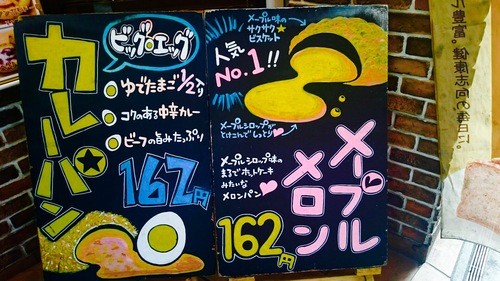 カレーパン
ビッグ・エッグ
ゆでたまご1/2入り
コクのある中辛カレー
ビーフの旨みたっぷり
162円
メープル味の
サクサク
ビスケット
人気
No.1!!
メープルシロップが
とけこんでしっとり
メープルシロップ味の
まるでホットケーキ
みたいな
メロンパン
メープル
メロン
162円
豊富。健康志向の毎日に。